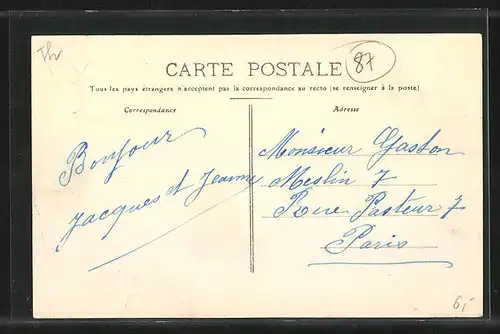 Thv
87
CARTE POSTALE
Tous les pays étrangers n'acceptent pas la correspondance au recto (se renseigner à la poste)
Correspondance
Adresse
Bonjour
Jacques et Jeanne
Monsieur Gaston
Meslin 7
Rue Pasteur 7
Paris
6,-